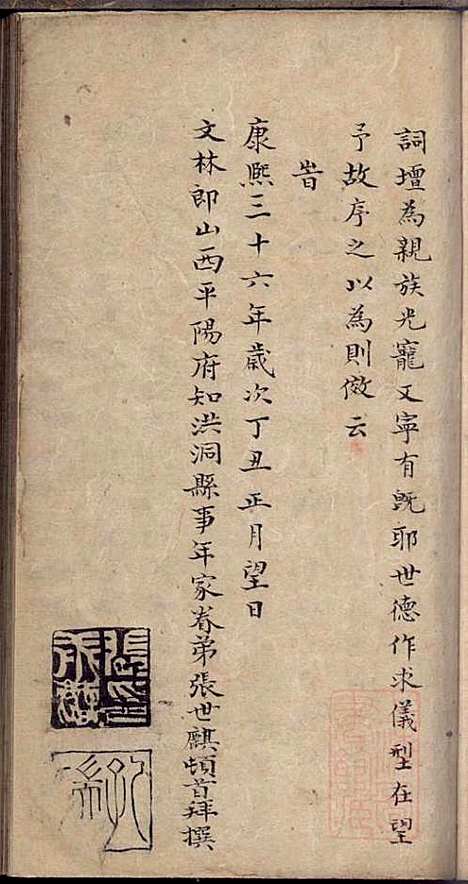 詞壇為親族光寵又寧有既耶世德作求儀型在望
予故序之以為則傚云
旹
康熙三十六年歲次丁丑正月望日
文林郎山西平陽府知洪洞縣事年家眷弟張世麒頓首拜撰